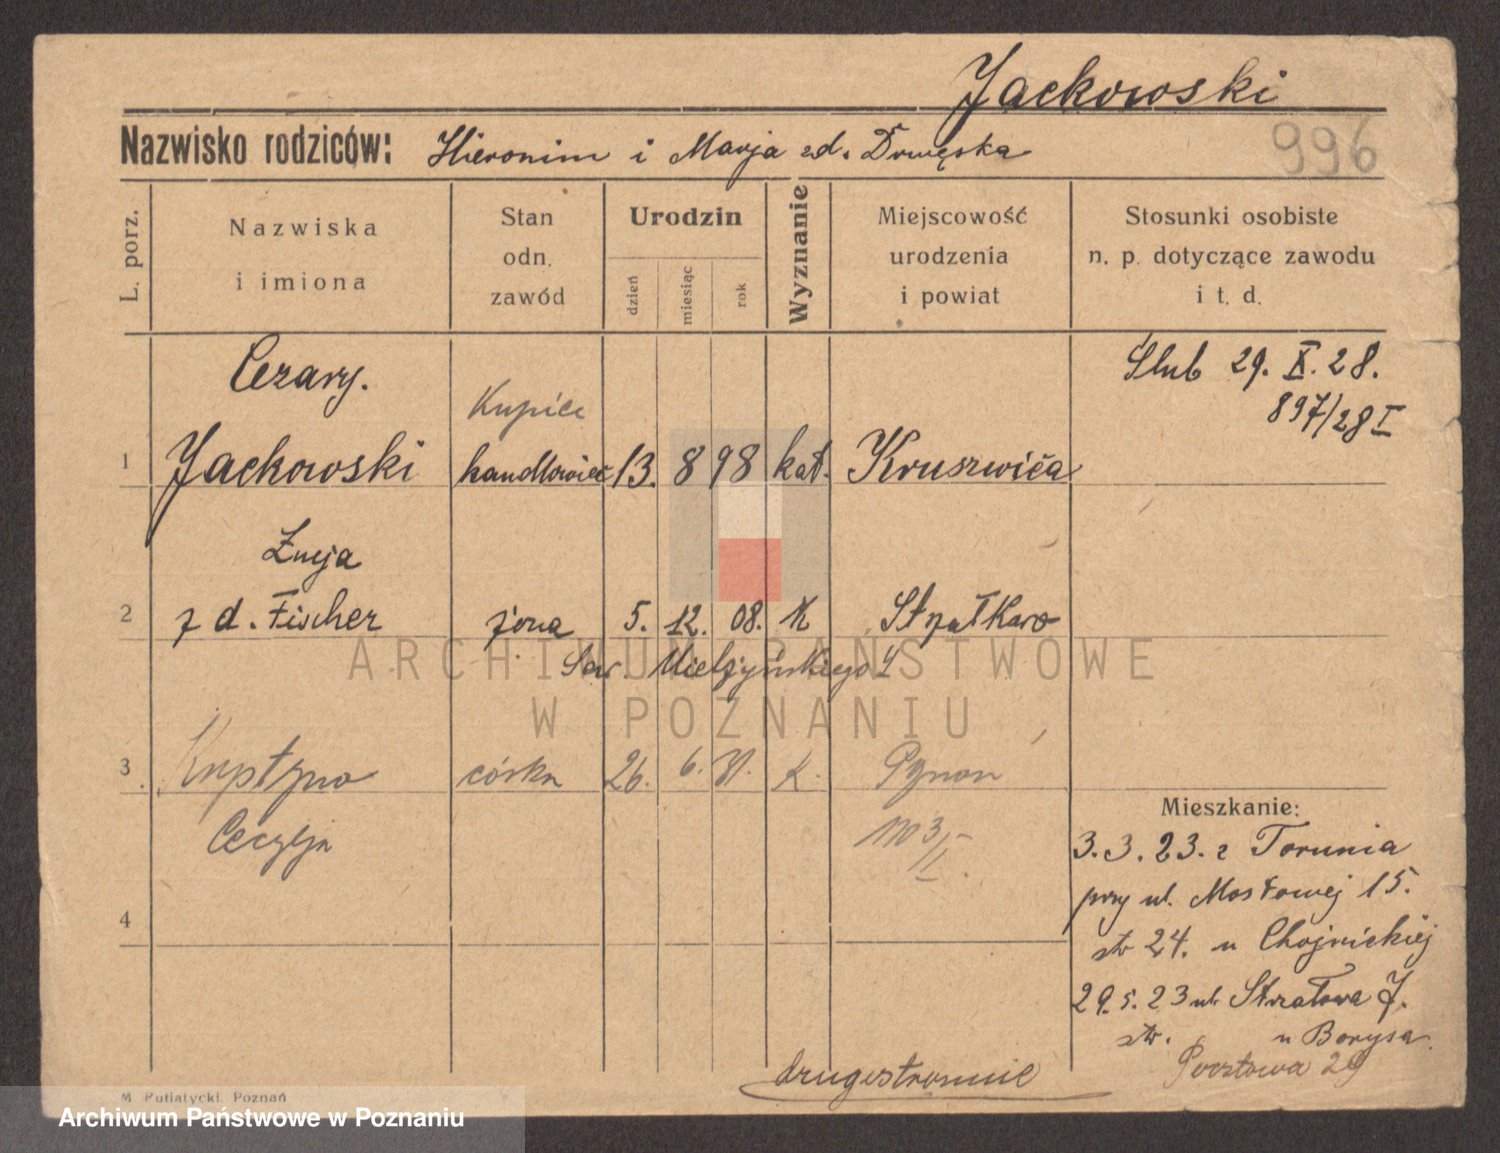 Jackowski
Nazwisko rodziców: Hieronim i Marja zd. Drwęska
996
L. porz.
Nazwiska
i imiona
Stan
odn.
zawód
Urodzin
dzień
miesiąc
rok
Wyznanie
Miejscowość
urodzenia
i powiat
Stosunki osobiste
n. p. dotyczące zawodu
i t. d.
Cezary.
Kupiec
Slub 29. X. 28.
897/28 I
1 Jackowski handlowiec 13. 8 98 kat. Kruszwica
Łucja
2 z d. Fischer żona 5. 12. 08. K Strzałkowo
Mielżyńskiego
3 córka 26. 6. 31. k.
Cecylja
4
Mieszkanie:
3. 3. 23. z Torunia
przy ul. Mostowej 15.
str 24. u Chojnickiej
29. 5. 23 ul. Strzałowa 7.
str. u Borysa.
Pocztowa 29
drugostronnie
M. Putiatycki, Poznań
ARCHIWUM PAŃSTWOWE
W POZNANIU
Archiwum Państwowe w Poznaniu